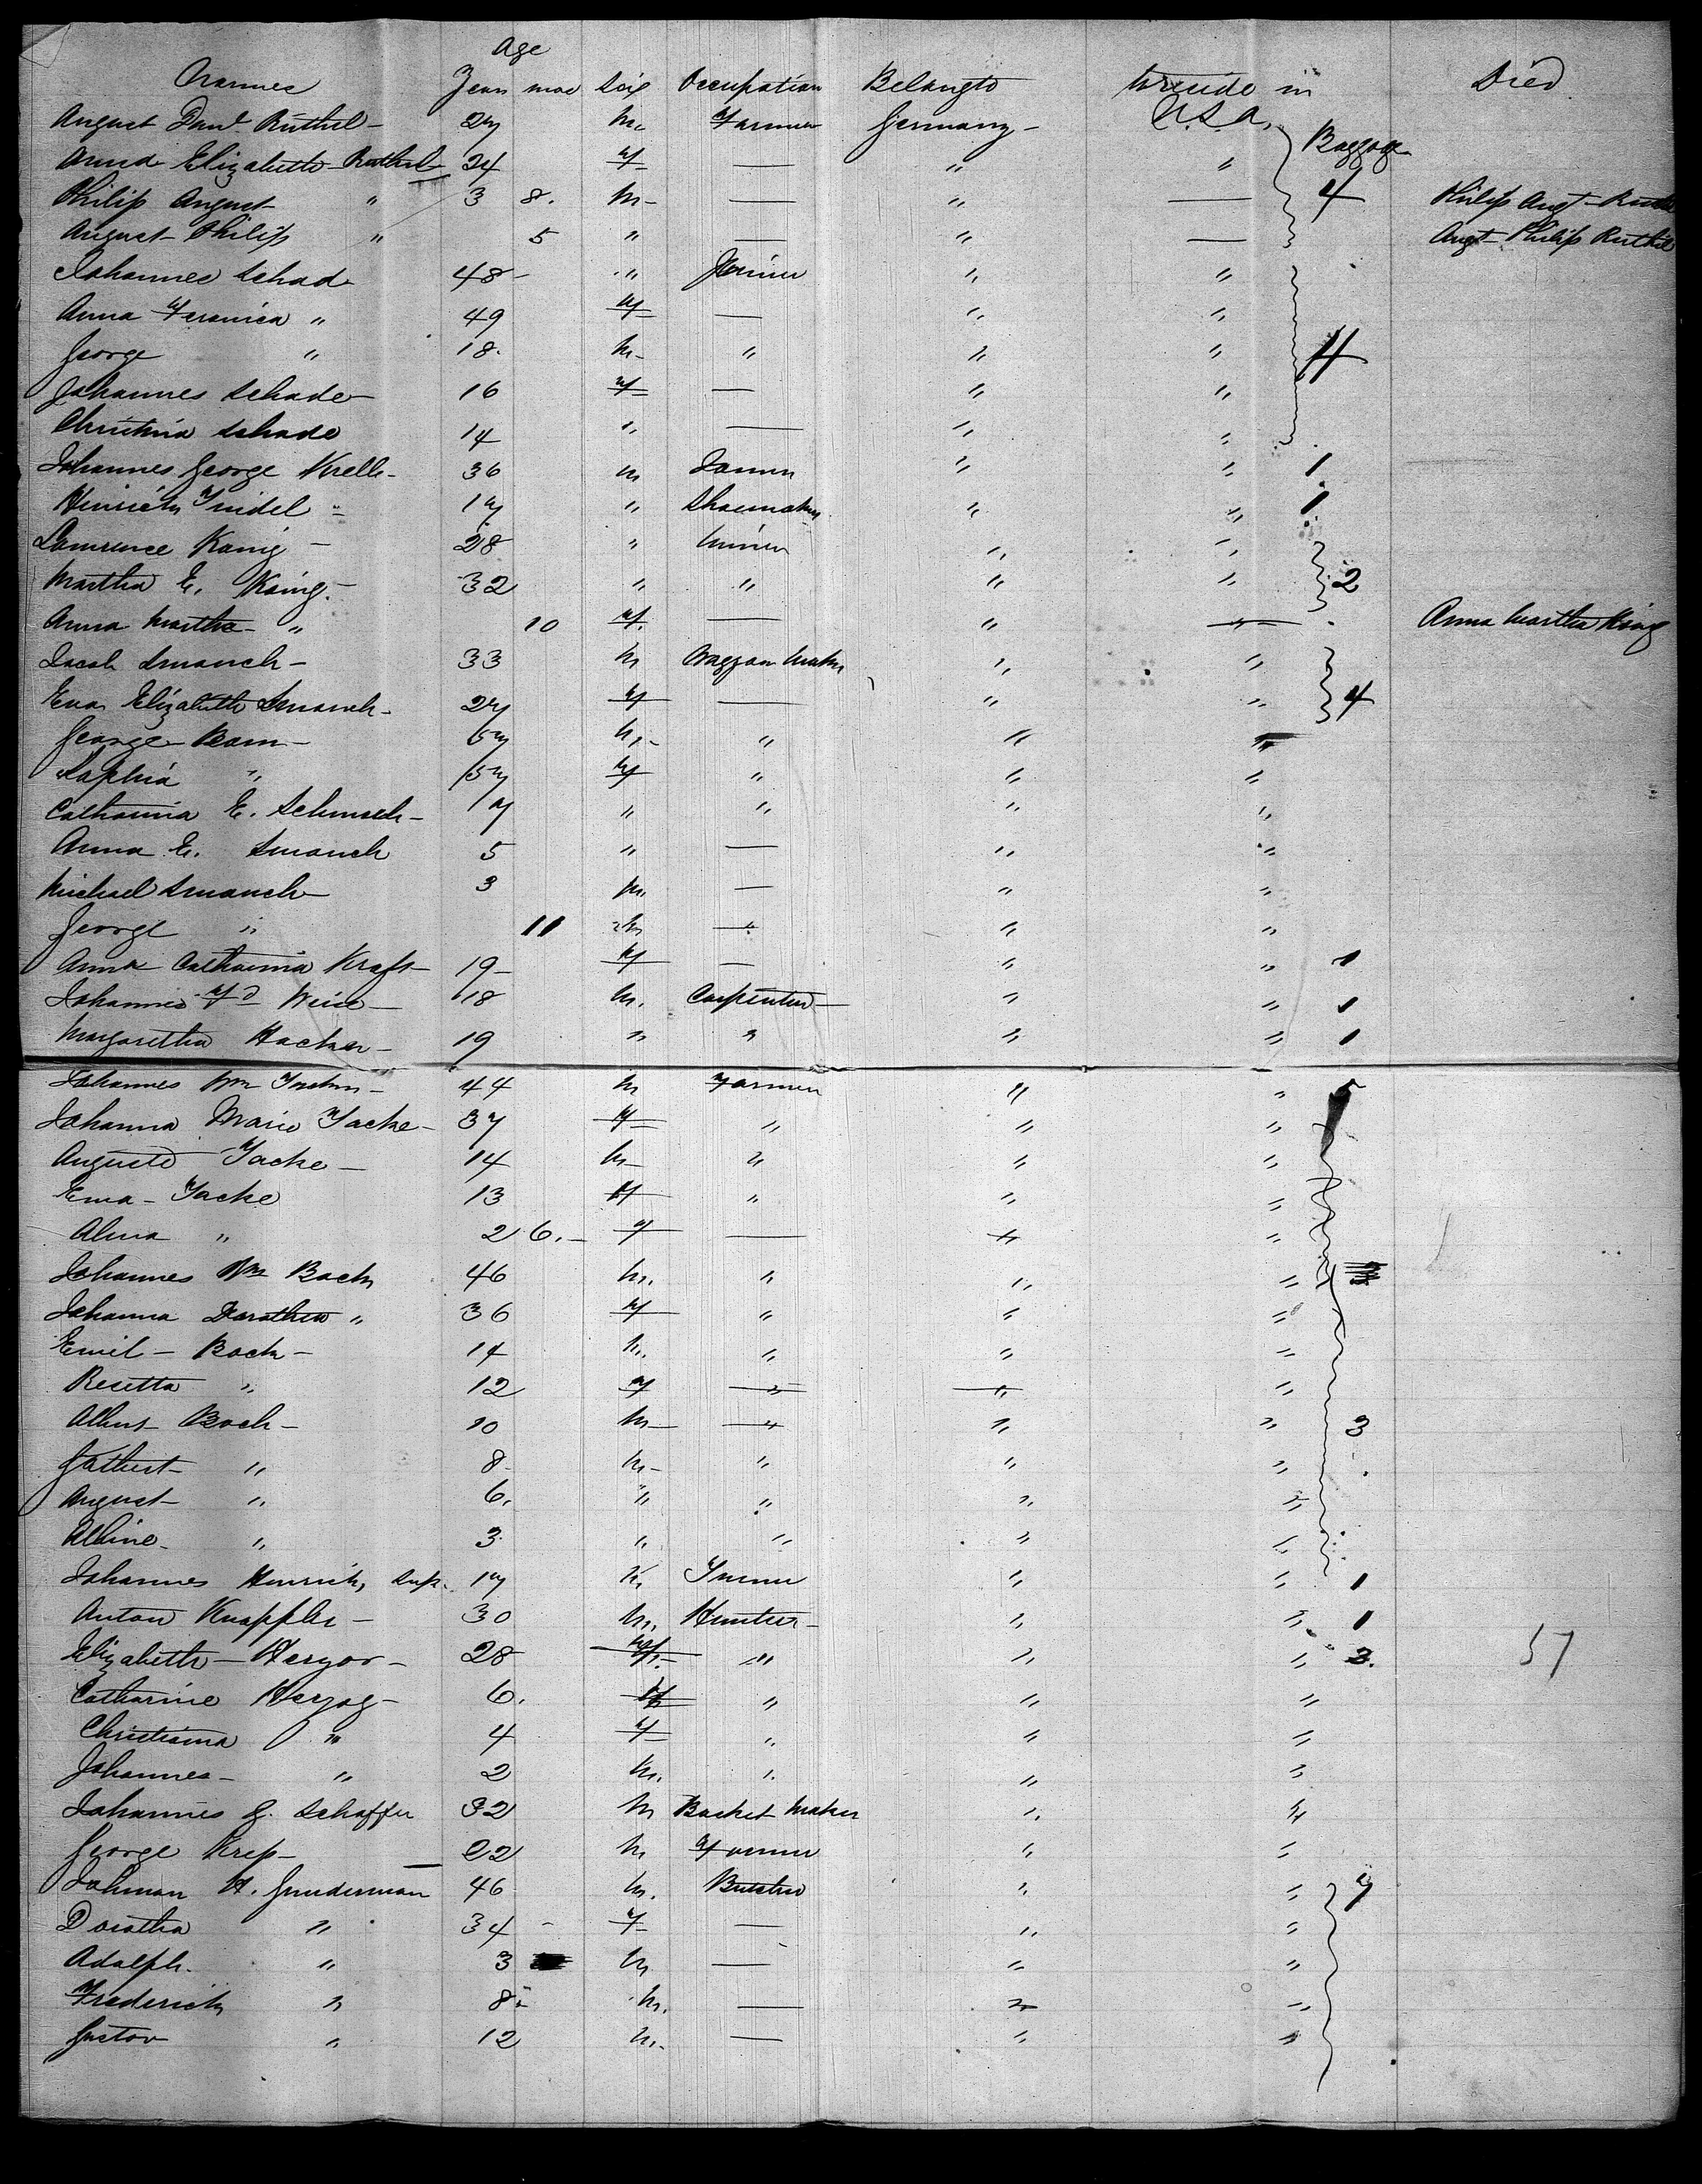 Age
Names Years mos Sex Occupation Belong to to reside in Died
August Danl Ruthel - 27 M. Farmer Germany - U.S.A. Baggage
Anna Elizabeth Ruthel 24 F — " "
Philip August " 3 8. M - — " — 4 Philip Augt -
August Philip " 5 " — " — Augt - Philip
Johannes Schad 48 - " " "
Anna Veronica " 49 F — " "
George " 18. M - " " " 4
Johannes Schade 16 F — " "
Christina Schade 14 " — " "
Johannes George Krell - 36 M " " 1
Heinrich 17 " Shoemaker " " 1
Lawrence Konig - 28 " Miner " "
Martha E. König. - 32 " " " " 2
Anna Martha - " 10 F. — " " Anna Martha King
Jacob Smauch - 33 M Waggon Maker " "
Eva Elizabeth Smauch - 27 F — " " 4
George - 57 M. - " " "
Sophia " 57 F " " "
Catharina E. 17 " " " "
Anna E. Smauch 5 " — " "
Michael Smauch - 3 M. — " "
George " 11 M " " "
Anna Catharina Kraft - 19 - F — " " 1
Johannes Fd Weice - 18 M. Carpenter - " " 1
Margaretha Hacker - 19 " " " " 1
Johannes Wm - 44 M Farmer " " 5
Johanna Marie Jacke - 37 F " " "
Auguste Jacke - 14 M - " " "
Ema - Jacke 13 F " " "
Alma " 2 6. - F — " "
Johannes Wm Bach 46 M. " " "
Johanna Dorothea " 36 F " " "
Emil - Bach - 14 M. " " "
Resetta " 12 F " " "
Albert Bach - 10 M - " " " 3
" 8 - M - " " "
August - " 6. " " " "
Albine - " 3. " " " "
Johannes Hinrich, 17 M " " 1
Anton Knappler - 30 M. Hunter - " " 1
Elizabeth - Herzog - 28 F. - " " " 3. 57
Catharine Herzog - 6. F " " "
Christiana " 4 F " " "
Johannes - " 2 M. " " "
Johannes G. Schaffer 32 M Basket Maker " "
George Krep - 22 M Farmer " "
Johman H. Gunderman 46 M. Butcher " " 7
Doratha " 34 - F — " "
Adolph. " 3 M — " "
Frederich " 8 - M. — " "
Gustav " 12 M. — " "